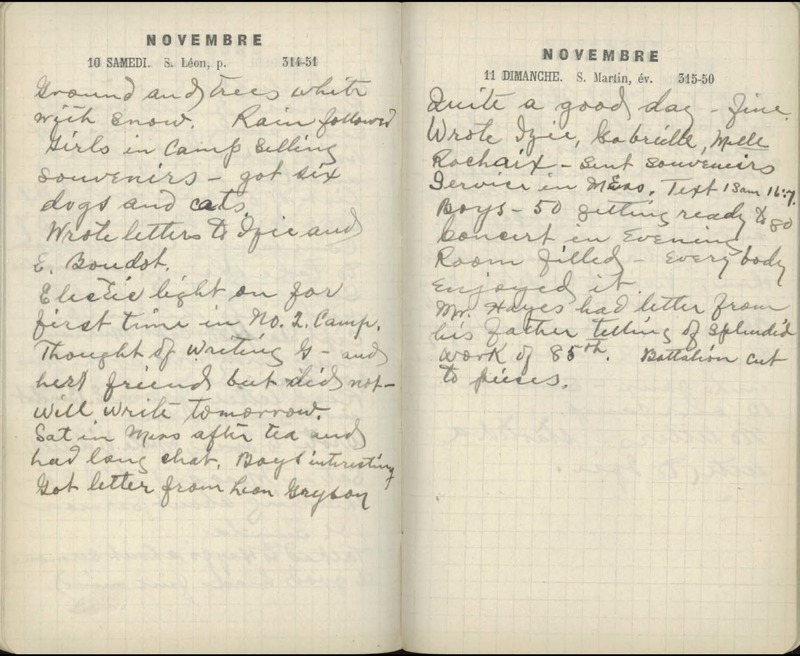 NOVEMBRE
10 SAMEDI. S. Léon, p. 314-51
Ground and trees white
with snow. Rain followed
Girls in Camp selling
souvenirs - got six
dogs and cats.
Wrote letters to Izie and
E. Boudot.
Electic light on for
first time in No. 2. Camp.
Thought of writing G - and
her friend but did not -
will write tomorrow.
Sat in Mess after tea and
had long chat. Boys interesting
Got letter from Leon Gryson
NOVEMBRE
11 DIMANCHE. S. Martin, év. 315-50
Quite a good day - fine.
Wrote Izie, Gabrielle, Melle
Rochaix - sent souvenirs
Service in Mess. Text 1 Sam 16:7.
Boys - 50 getting ready to go
Concert in Evening
Room filled - Everybody
enjoyed it.
Mr. Hayes had letter from
his father telling of splendid
work of 85th. Battalion cut
to pieces.